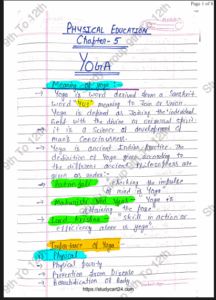 Page 1 of 9
PHYSICAL EDUCATION
Chapter - 5
YOGA
Meaning of Yoga :
Yoga is word derived form a Sanskrit
word 'YUJ' meaning to Join or Union
Yoga is defined as Joining the individual
with the divine or universal spirit
it is a Science of development of
man's Consciousness.
Yoga is ancient Indian practice. The
deduction of Yoga given according to
the different ancient
are given as under:-
Patanjali "Checking the impulse
of mind is Yoga
Maharishi Ved Vyas Yoga is
attaining the
Lord Krishna - "Skill in action or
efficiency alone is yoga".
Importance of Yoga
Physical
Physical purity
Prevention from Disease
Beautification of Body
https://studycart24.com